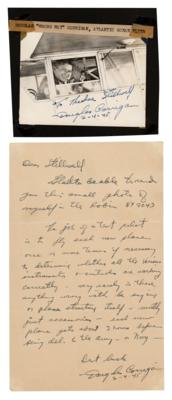 DOUGLAS "WRONG WAY" CORRIGAN, ATLANTIC OCEAN FLYER
To Theodore Stillwell
Douglas Corrigan
2-4-45
Dear Stillwell
Glad to be able to send
you this small photo of
myself - the Robin
The job of a test pilot
is to fly each new plane
one or more times if necessary
to determine whether all the various
instruments & controls are working
correctly - very rarely is there
anything wrong with the engine
or plane structure itself - mostly
just accessories - each new
plane gets about 3 hours before
being del. to the Army - or Navy -
Best luck
Douglas Corrigan
2-4-45